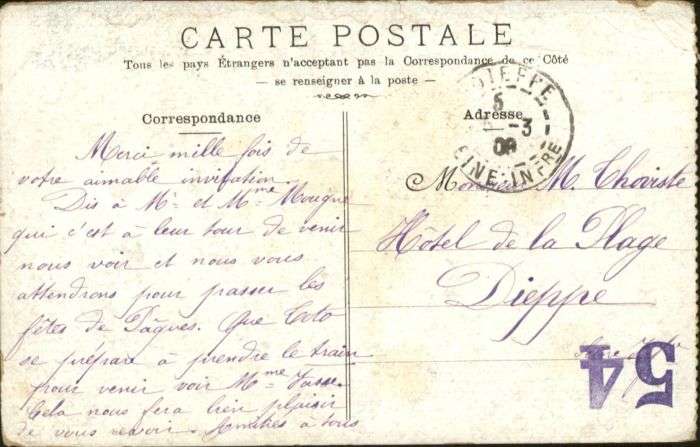 CARTE POSTALE
Tous les pays Étrangers n'acceptant pas la Correspondance de ce Côté
— se renseigner à la poste —
Correspondance
Merci mille fois de
votre aimable invitation.
Dis à Mr et Mme Mougne
qui c'est à leur tour de venir
nous voir et nous vous
attendrons pour passer les
fêtes de Pâques. Que
se prépare à prendre le train
pour venir voir Mme
Cela nous fera bien plaisir
de vous revoir. Amitiés à tous
Adresse
DIEPPE
5
-3
09
SEINE-INFRE
M. Choviste
Hotel de la Plage
Dieppe
54